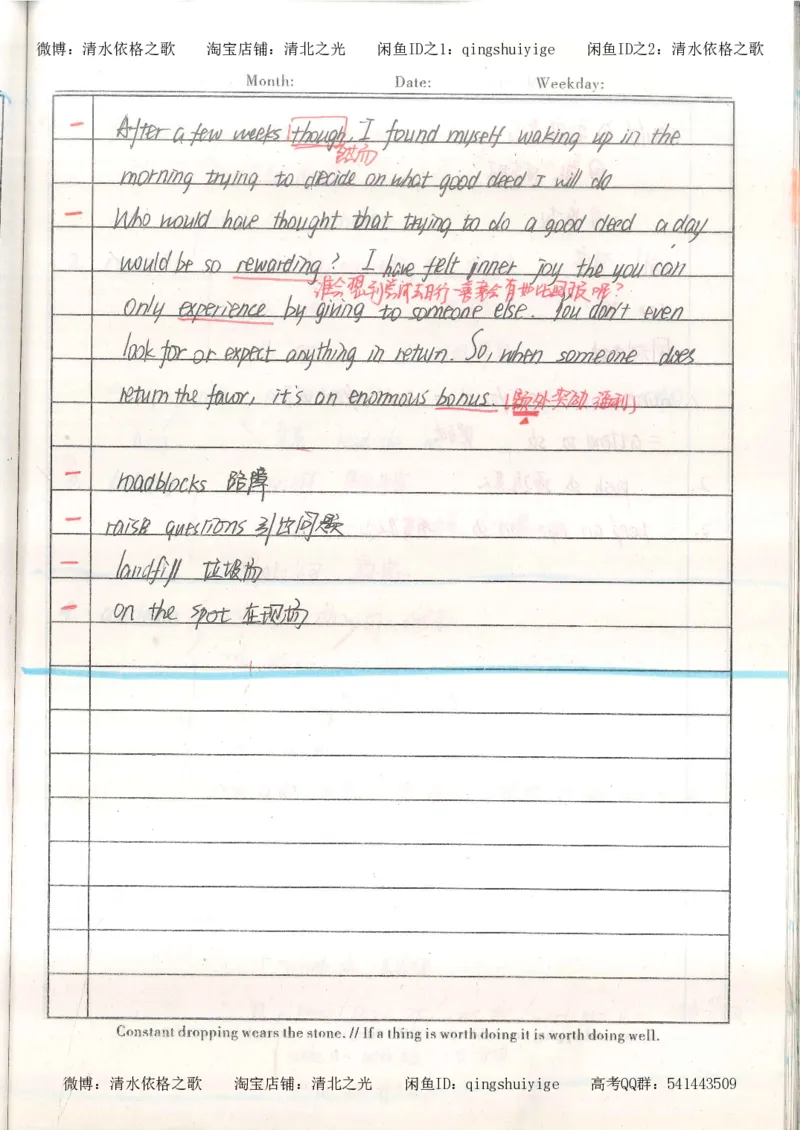 微博：清水依格之歌 淘宝店铺：清北之光 闲鱼ID之1：qingshuiyige 闲鱼ID之2：清水依格之歌
Month: Date: Weekday:
After a few weeks though, I found myself waking up in the
然而
morning trying to decide on what good deed I will do
Who would have thought that trying to do a good deed a day
would be so rewarding? I have felt inner joy the you can
谁会想到尝试去日行一善来会有如此回报呢？
only experience by giving to someone else. You don't even
look for or expect anything in return. So, when someone does
return the favor, it's an enormous bonus. (额外奖励 福利)
roadblocks 路障
raise questions 引出问题
landfill 垃圾场
on the spot 在现场
Constant dropping wears the stone. // If a thing is worth doing it is worth doing well.
微博：清水依格之歌 淘宝店铺：清北之光 闲鱼ID：qingshuiyige 高考QQ群：541443509